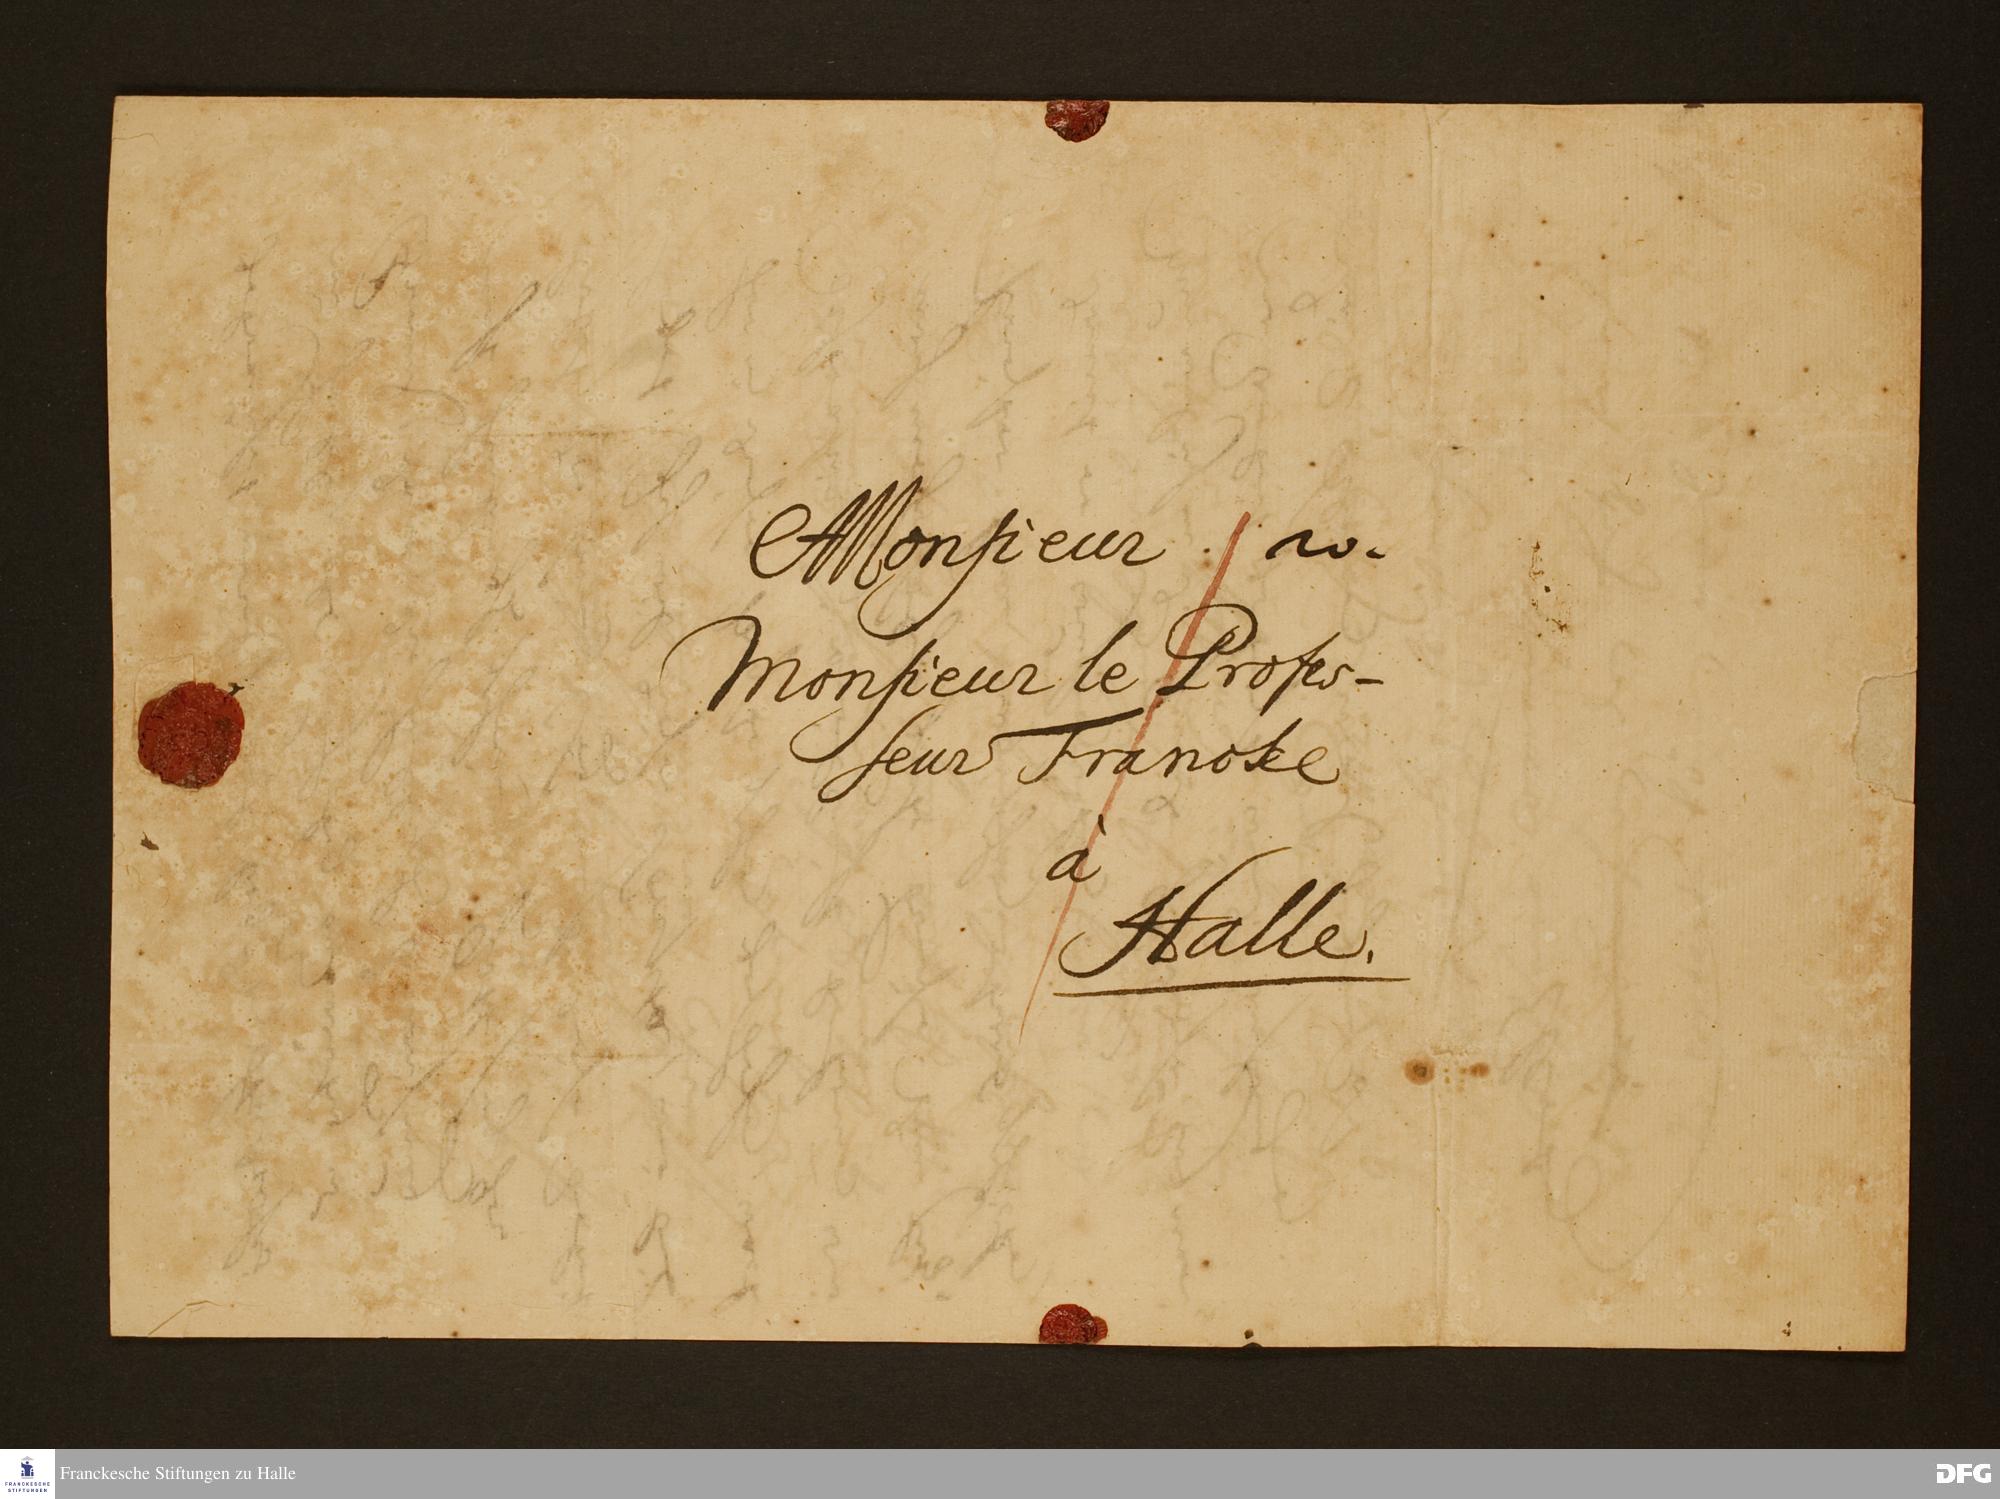 Monsieur
Monsieur le Profes-
seur Francke
à
Halle.
Franckesche Stiftungen zu Halle
FRANCKESCHE
STIFTUNGEN
DFG